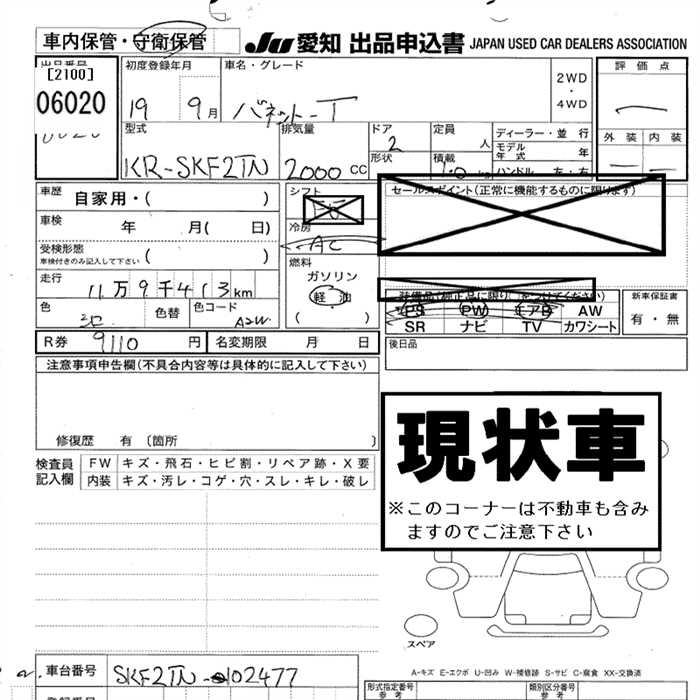 車内保管・守衛保管
JU 愛知 出品申込書 JAPAN USED CAR DEALERS ASSOCIATION
出品番号
[2100]
06020
初度登録年月
19 9月
車名・グレード
バネット-T
2WD
・
4WD
評価点
外装 内装
型式
KR-SKF2TN
排気量
2000 cc
ドア
2
定員
人
形状
積載
1.0 kg
ディーラー・並行
モデル年式 年
ハンドル 左・右
車歴 自家用・( )
車検 年 月( 日)
受検形態
車検付きのみ記入して下さい ( )
走行 11万9千413km
色
色替
色コード
A2W
シフト
冷房
AC
燃料
ガソリン
軽油
( )
セールスポイント(正常に機能するものに限ります)
PS PW エアB AW
SR ナビ TV カワシート
新車保証書
有・無
後日品
R券 9110 円
名変期限 月 日
注意事項申告欄(不具合内容等は具体的に記入して下さい)
修復歴 有 〔箇所 〕
検査員記入欄
FW キズ・飛石・ヒビ割・リペア跡・X要
内装 キズ・汚レ・コゲ・穴・スレ・キレ・破レ
現状車
※このコーナーは不動車も含みますのでご注意下さい
スペア
A-キズ E-エクボ U-凹み W-補修跡 S-サビ C-腐食 XX-交換済
車台番号 SKF2TN-102477
形式指定番号
参考
類別区分番号
参考